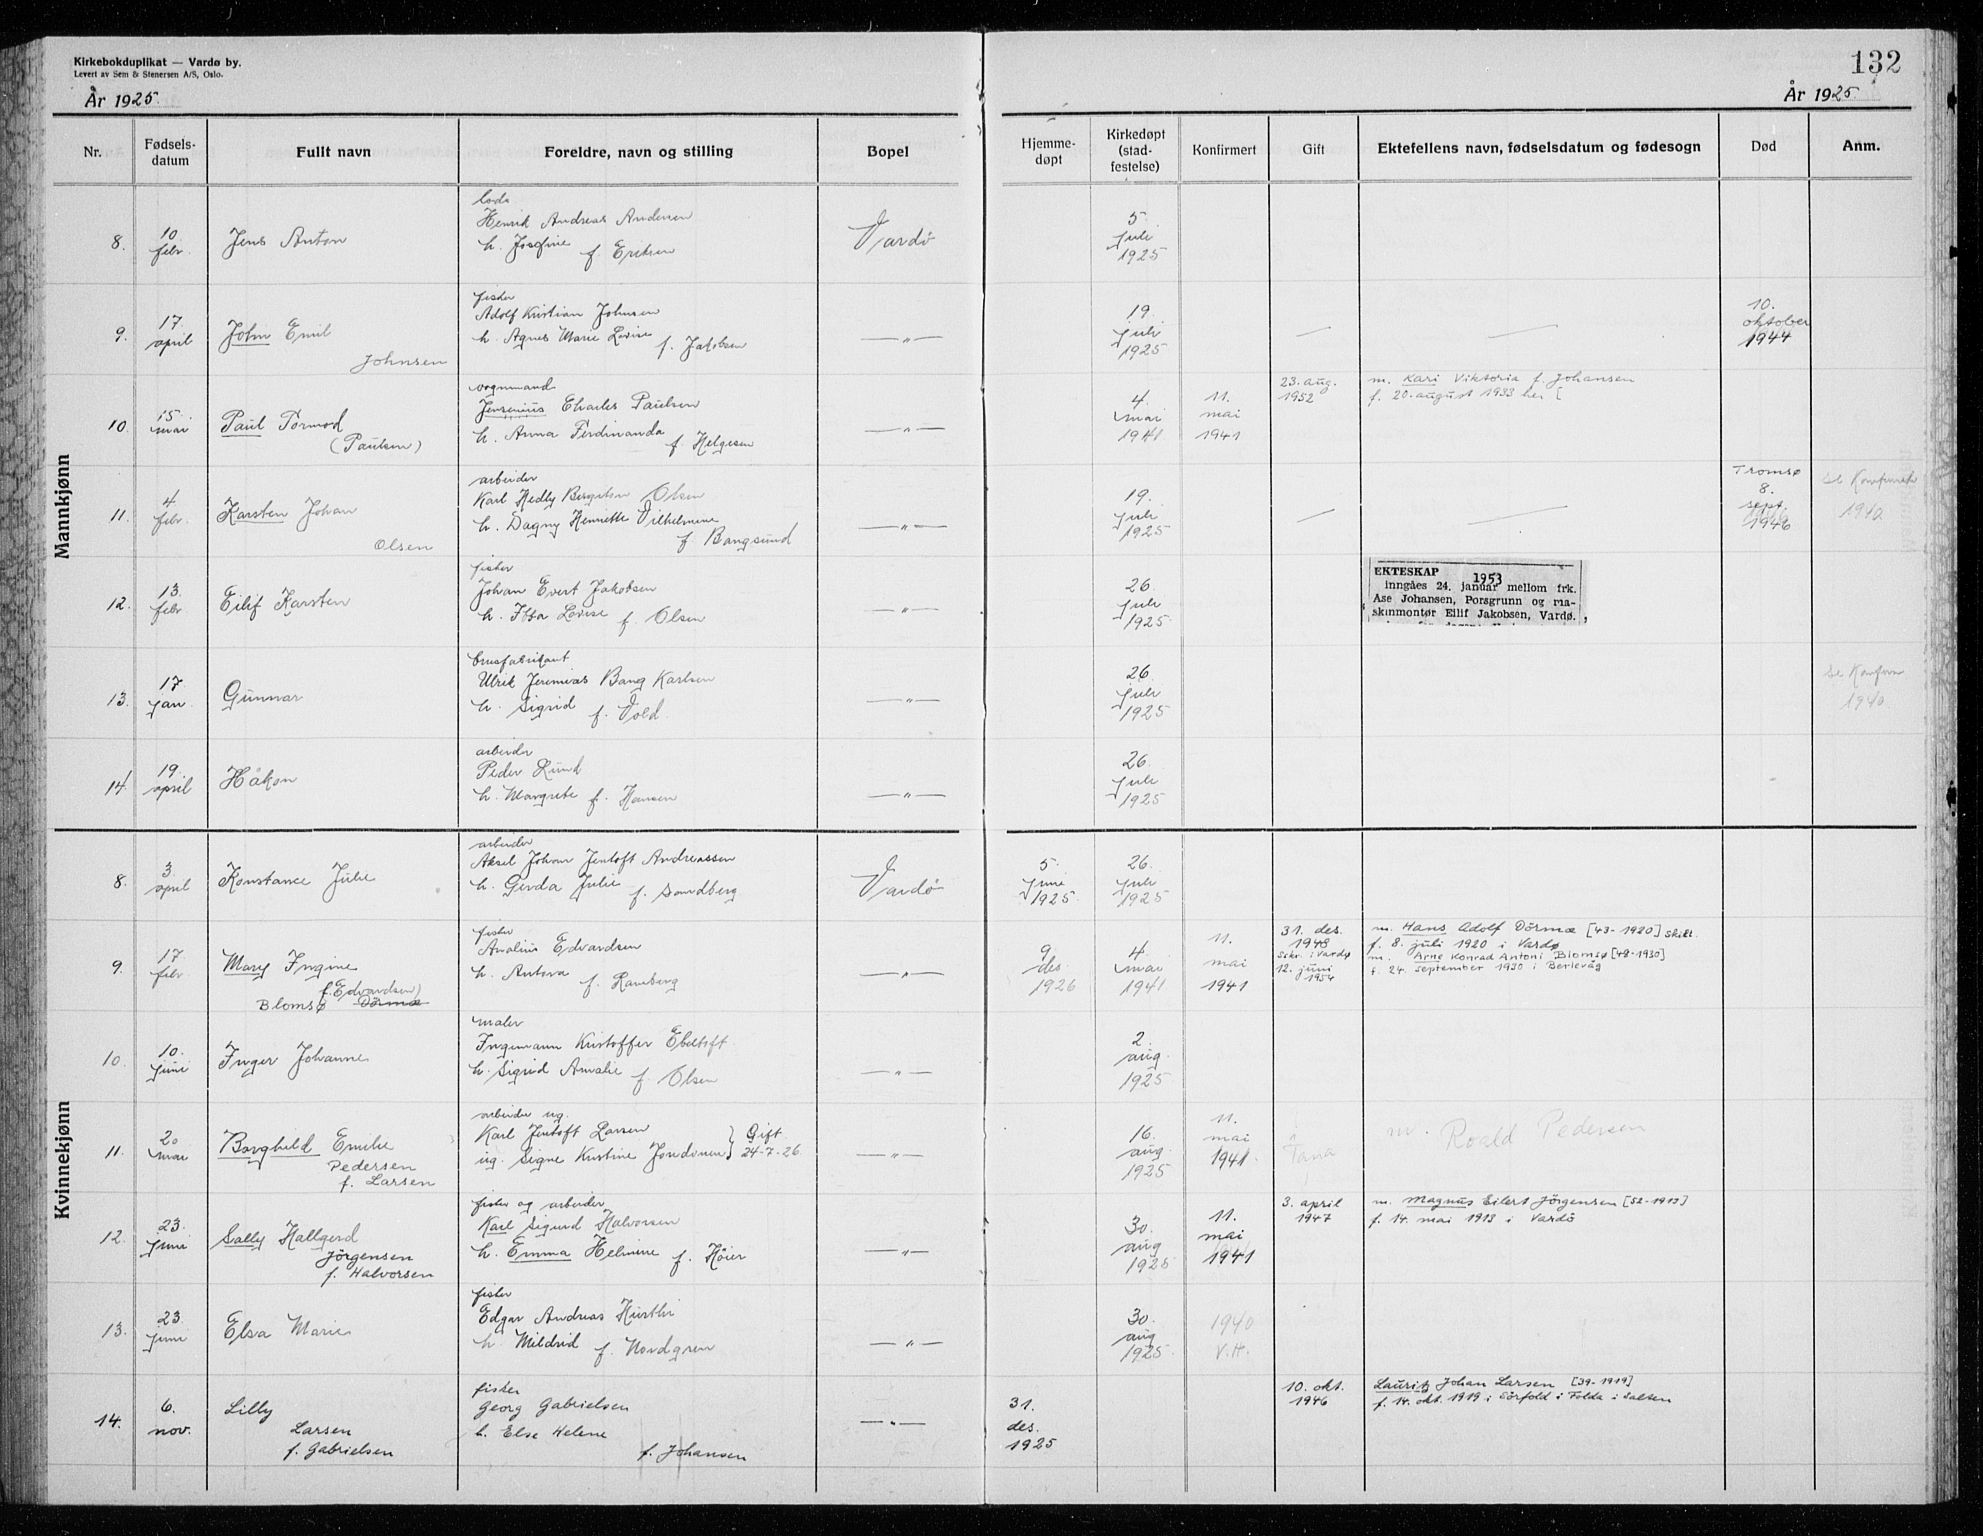 Kirkebokduplikat — Vardø by.
Levert av Sem & Stenersen A/S, Oslo.
132
År 1925.
År 1925.
Nr.
Fødsels-
datum
Fullt navn
Foreldre, navn og stilling
Bopel
Hjemme-
døpt
Kirkedøpt
(stad-
festelse)
Konfirmert
Gift
Ektefellens navn, fødselsdatum og fødesogn
Død
Anm.
Mannkjønn
8.
10
febr.
Jens Anton
Henrik Andreas Andersen
h. Josefine f. Eriksen
Vardø
5.
juli
1925
9.
17.
april
John Emil
Johnsen
fisker
Adolf Kristian Johnsen
h. Agnes Marie Lovise f. Jakobsen
— " —
19.
juli
1925
—
—
10.
oktober
1944
10.
15.
mai
Paul Tormod
(Paulsen)
vognmand
Jensenius Charles Paulsen
h. Anna Ferdinanda f. Helgesen
— " —
4.
mai
1941
11.
mai
1941
23. aug.
1952
m. Kari Viktoria f. Johansen
f. 20. august 1933 her [
11.
4
febr.
Karsten Johan
Olsen
arbeider
Karl Hedly Bergiton Olsen
h. Dagny Henriette Vilhelmine
f. Bangsund
— " —
19.
juli
1925
—
—
Tromsø
8.
sept.
1946
se Konfirmerte
1940
12.
13.
febr
Eilif Karsten
fisker
Johan Evert Jakobsen
h. Lovise f. Olsen
— " —
26
juli
1925
EKTESKAP 1953
inngåes 24. januar mellom frk.
Ase Johansen, Porsgrunn og ma-
skinmontør Eilif Jakobsen, Vardø.
13.
17.
jan
Gunnar
brusfabrikant
Ulrik Jeremias Bang Karlsen
h. Sigrid f. Vold
— " —
26.
juli
1925
se Konfirm
1940
14
19.
april
Håkon
arbeider
Peder Lund
h. Margrete f. Hansen
— " —
26.
juli
1925
Kvinnekjønn
8.
3.
april
Konstance Julie
arbeider
Aksel Johan Jentoft Andreassen
h. Gerda Julie f. Sandberg
Vardø
5.
juni
1925
26.
juli
1925
9.
17.
febr
Mary Ingine
f. Edvardsen)
Blomsø Dørmæ
fisker
Analius Edvardsen
h. Antora f. Ramberg
9.
des.
1926
4
mai
1941
11.
mai
1941
31. des.
1948
Skr. i Vardø
12. juni
1954
m. Hans Adolf Dørmæ [43-1920] Skilt.
f. 8. juli 1920 i Vardø
m. Arne Konrad Antoni Blomsø [48-1930]
f. 24. september 1930 i Berlevåg
10.
10.
juni
Inger Johanne
maler
Ingemann Kristoffer Ebeltoft
h. Sigrid Amalie f. Olsen
— " —
2.
aug.
1925
11.
20
mai
Borghild Emilie
Pedersen
f. Larsen
arbeider ug.
Karl Jentoft Larsen } Gift
ug. Signe Kristine 24-7-26.
— " —
16.
aug.
1925
11.
mai
1941.
i
Tana
m. Roald Pedersen
12.
23.
juni
Sally Hallgerd
Jørgensen
f. Halvorsen
fisker og arbeider
Karl Sigurd Halvorsen
h. Emma Helmine f. Høier
— " —
30.
aug
1925
11.
mai
1941
3. april
1947
m. Magnus Eilert Jørgensen [52-1913]
f. 14. mai 1913 i Vardø
13.
23.
juni
Elsa Marie
fisker
Edgar Andreas Hurthi
h. Mildrid f. Nordgren
— " —
30.
aug
1925.
1940
V.H.
14.
6.
nov.
Lilly
Larsen
f. Gabrielsen
fisker
Georg Gabrielsen
h. Else Helene
f. Johansen
— " —
31.
des.
1925
10. okt.
1946
Lauritz Johan Larsen [39-1919]
f. 14. okt. 1919 i Sørfold i Folda i Salten